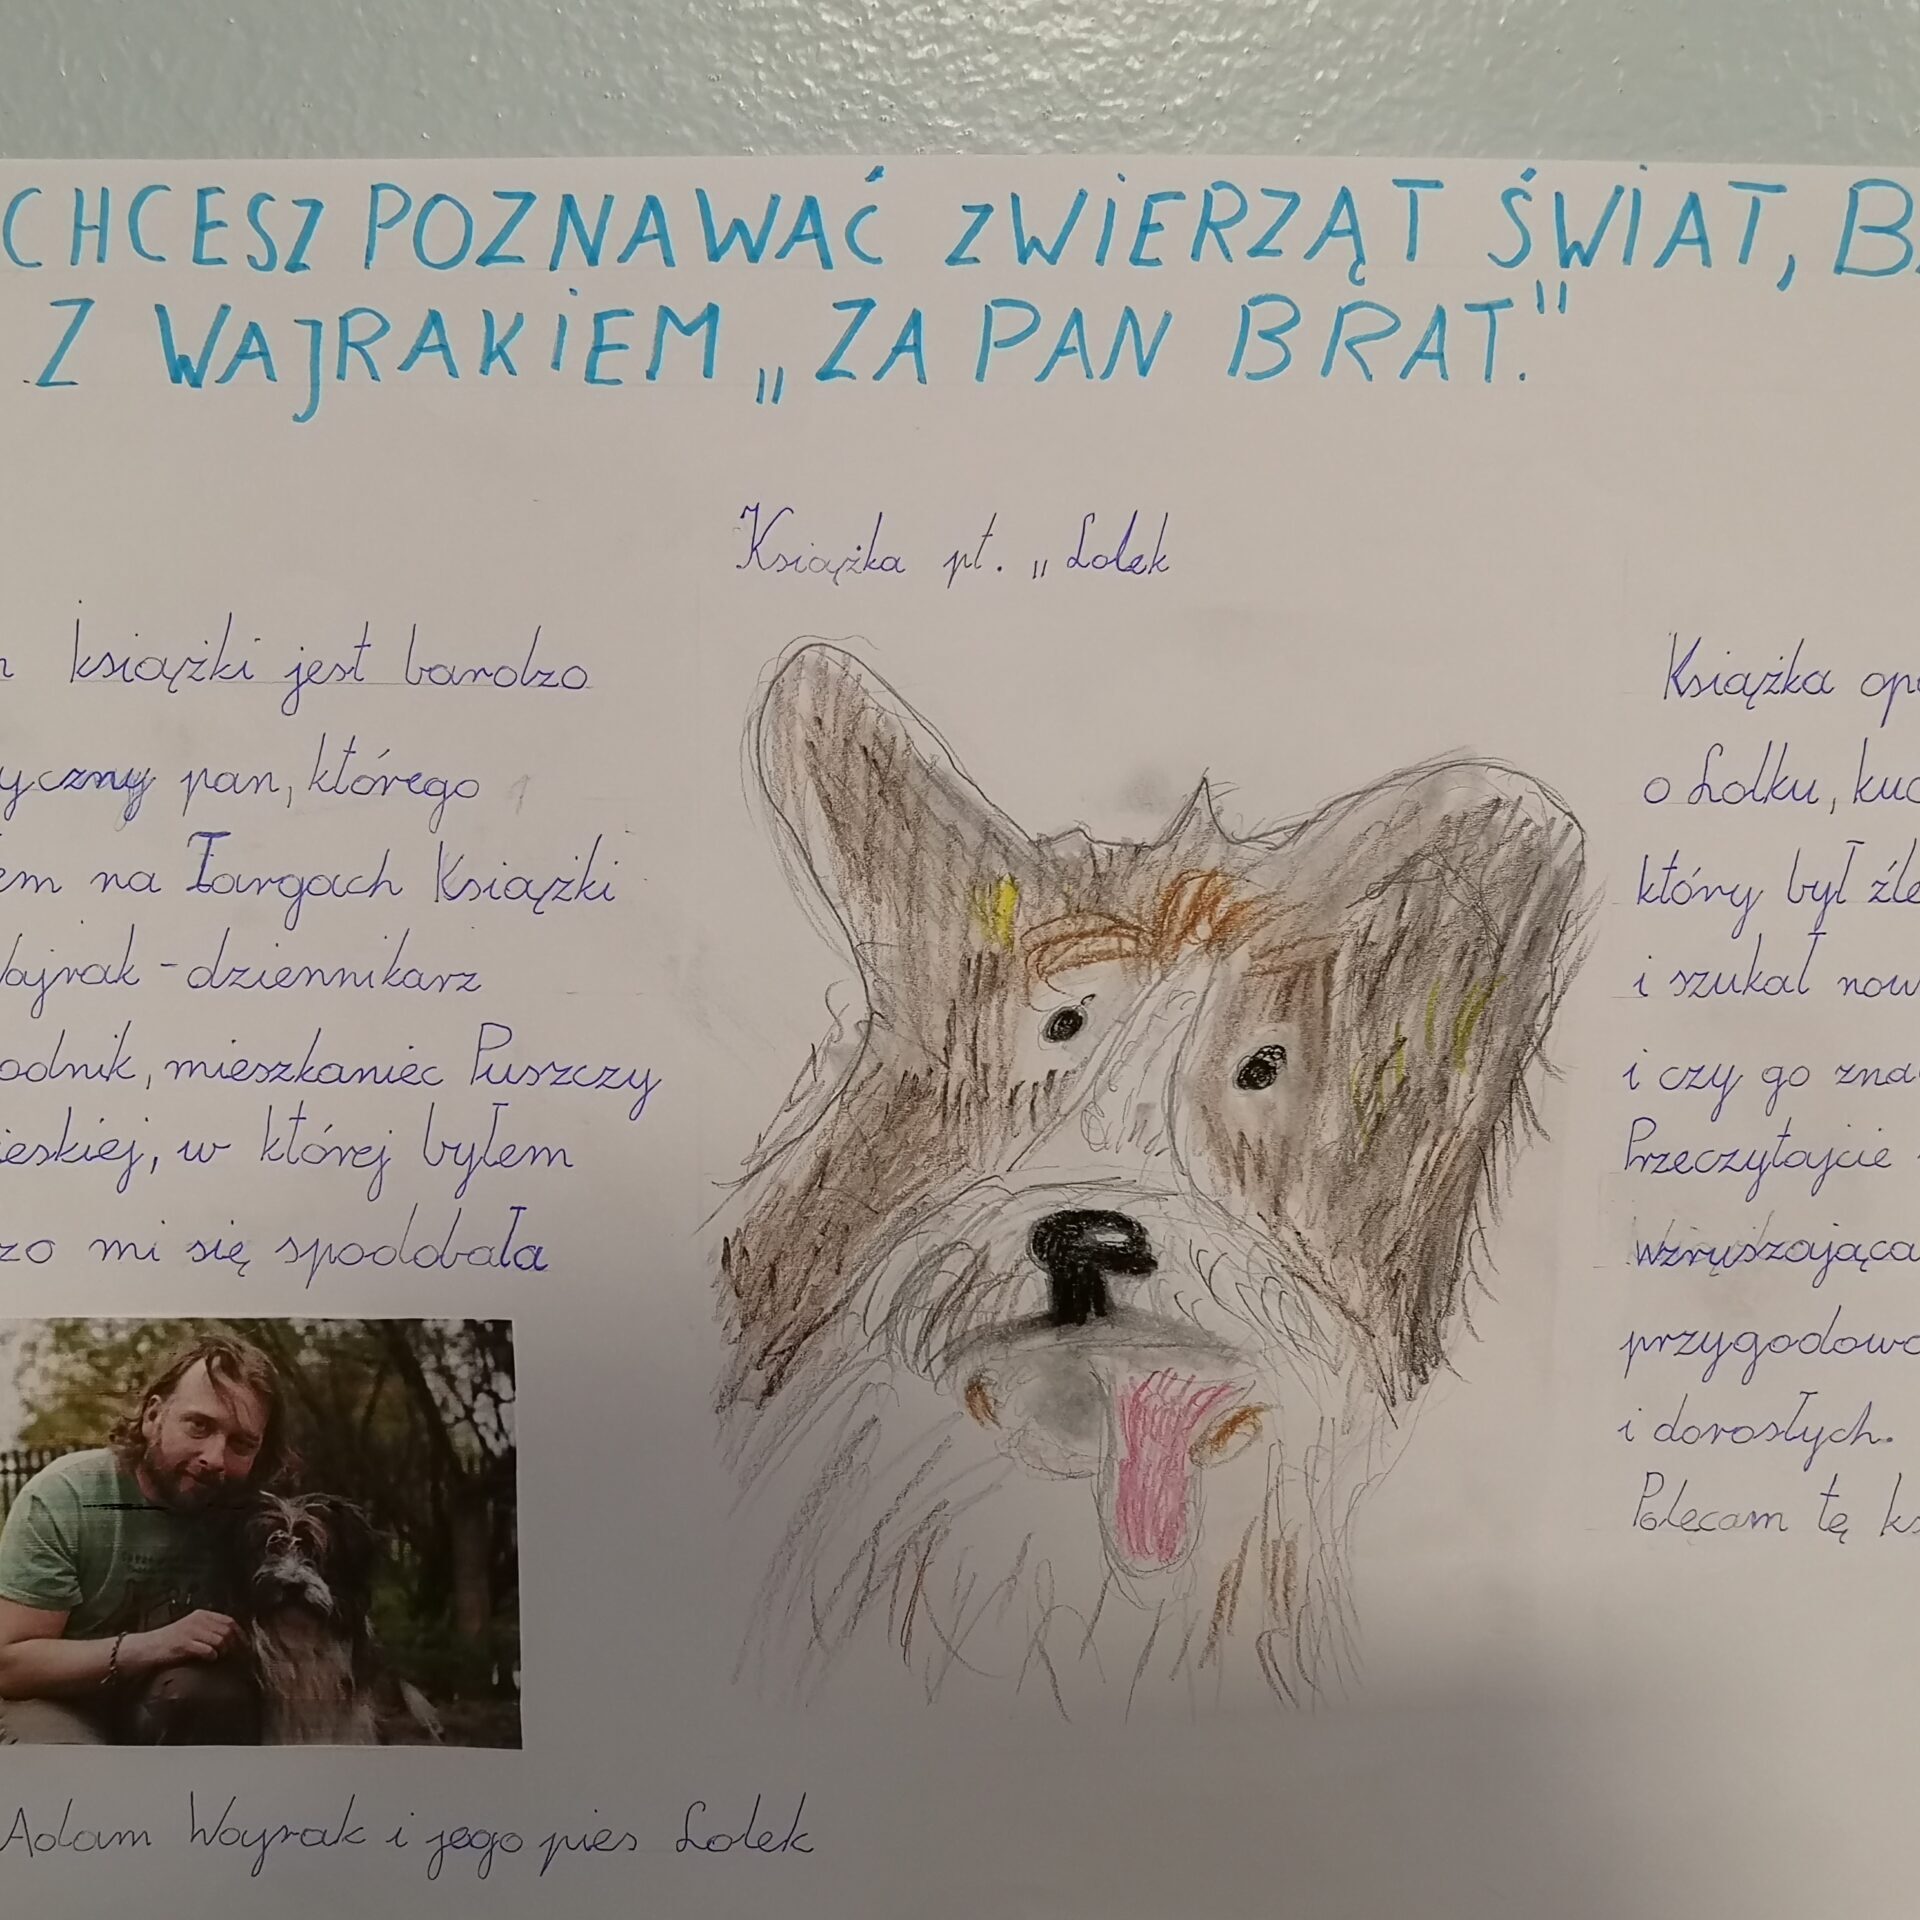 CHCESZ POZNAWAĆ ZWIERZĄT ŚWIAT,
Z WAJRAKIEM „ZA PAN BRAT."
Książka pt. „Lolek
książki jest bardzo
pan, którego
na Targach Książki
Wajrak - dziennikarz
mieszkaniec Puszczy
w której byłem
mi się spodobała
Adam Wajrak i jego pies Lolek
Książka
o Lolku,
który był
i szukał
i czy go
Przeczytajcie
wzruszająca
i dorosłych.
Polecam tę